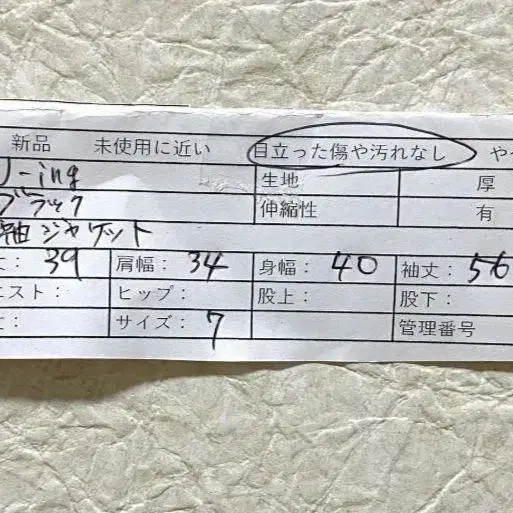 新品 未使用に近い 目立った傷や汚れなし や
J-ing 生地 厚
ブラック 伸縮性 有
袖ジャケット
丈: 39 肩幅: 34 身幅: 40 袖丈: 56
エスト: ヒップ: 股上: 股下:
サイズ: 7 管理番号